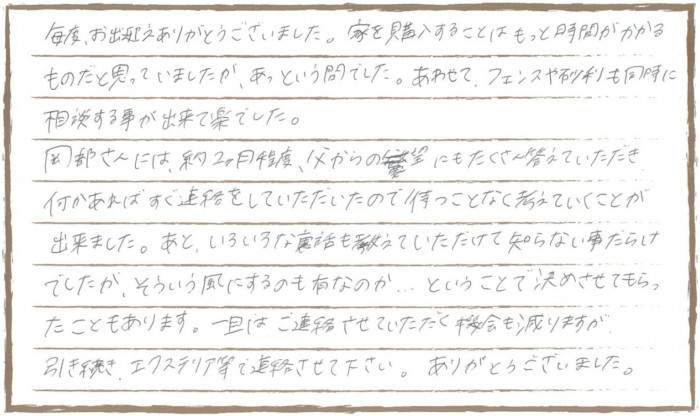 毎度、お出迎えありがとうございました。家を購入することはもっと時間がかかる
ものだと思っていましたが、あっという間でした。あわせて、フェンスや砂利も同時に
相談する事が出来て楽でした。
岡部さんには、約2ヶ月程度、父からの望にもたくさん答えていただき
何かあればすぐ連絡をしていただいたので待つことなく考えていくことが
出来ました。あと、いろいろな裏話も教えていただけて知らない事だらけ
でしたが、そういう風にするのも有なのか…ということで決めさせてもらっ
たこともあります。一旦はご連絡させていただく機会も減りますが、
引き続き、エクステリア等で連絡させて下さい。ありがとうございました。